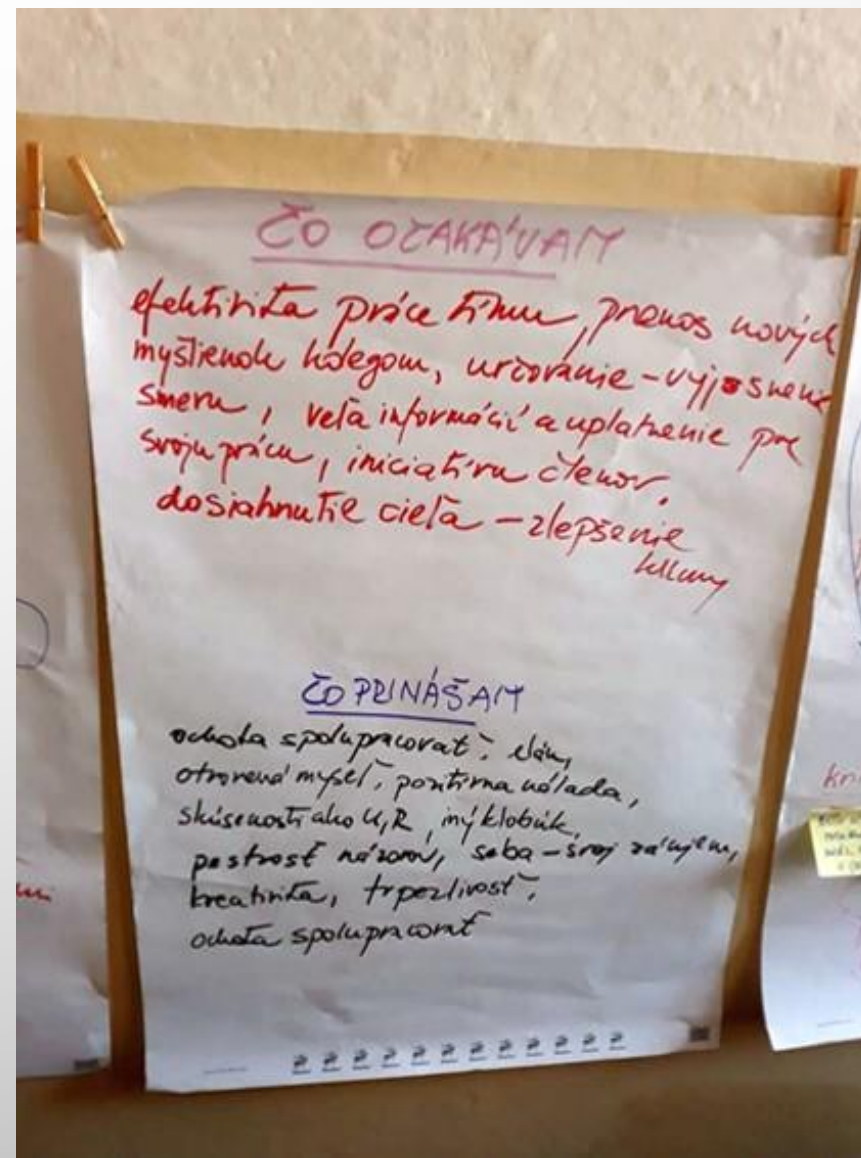 ČO OČAKÁVAM
efektivita práce tímu, prenos nových
myšlienok kolegom, určovanie - vyjasnenie
smeru, veľa informácií a uplatnenie pre
svoju prácu, iniciatívu členov,
dosiahnutie cieľa - zlepšenie
klímy
ČO PRINÁŠAM
ochota spolupracovať, elán,
otvorená myseľ, pozitívna nálada,
skúsenosti ako U, R, iný klobúk,
pestrosť názorov, seba - svoj záujem,
kreativita, trpezlivosť,
ochota spolupracovať